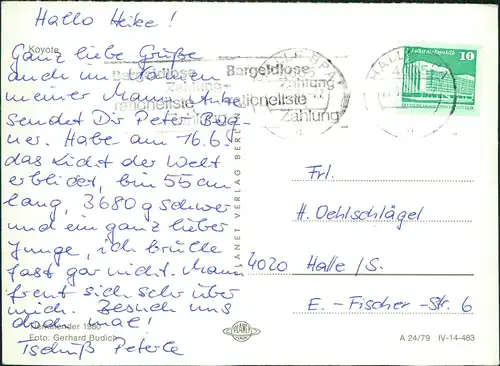 Hallo Heike!
Koyote
Ganz liebe Grüße
auch im Namen
meiner Mama Antje
sendet Dir Peter
ner. Habe am 16.6.
das Licht der Welt
erblickt, bin 55 cm
lang, 3680 g schwer
und ein ganz lieber
Junge, ich brülle
fast gar nicht. Mama
freut sich sehr über
mich. Besuch uns
doch mal!
Tschüß Peterle
Tierkalender 1980
Foto: Gerhard Budich
Bargeldlose
Zahlung -
rationellste
Zahlung
Bargeldlose
Zahlung -
rationellste
Zahlung
HALLE
Palast der Republik
10
PLANET VERLAG BERLIN
PLANET
Frl.
H. Oehlschlägel
4020 Halle/S.
E.-Fischer-Str. 6
A 24/79 IV-14-483